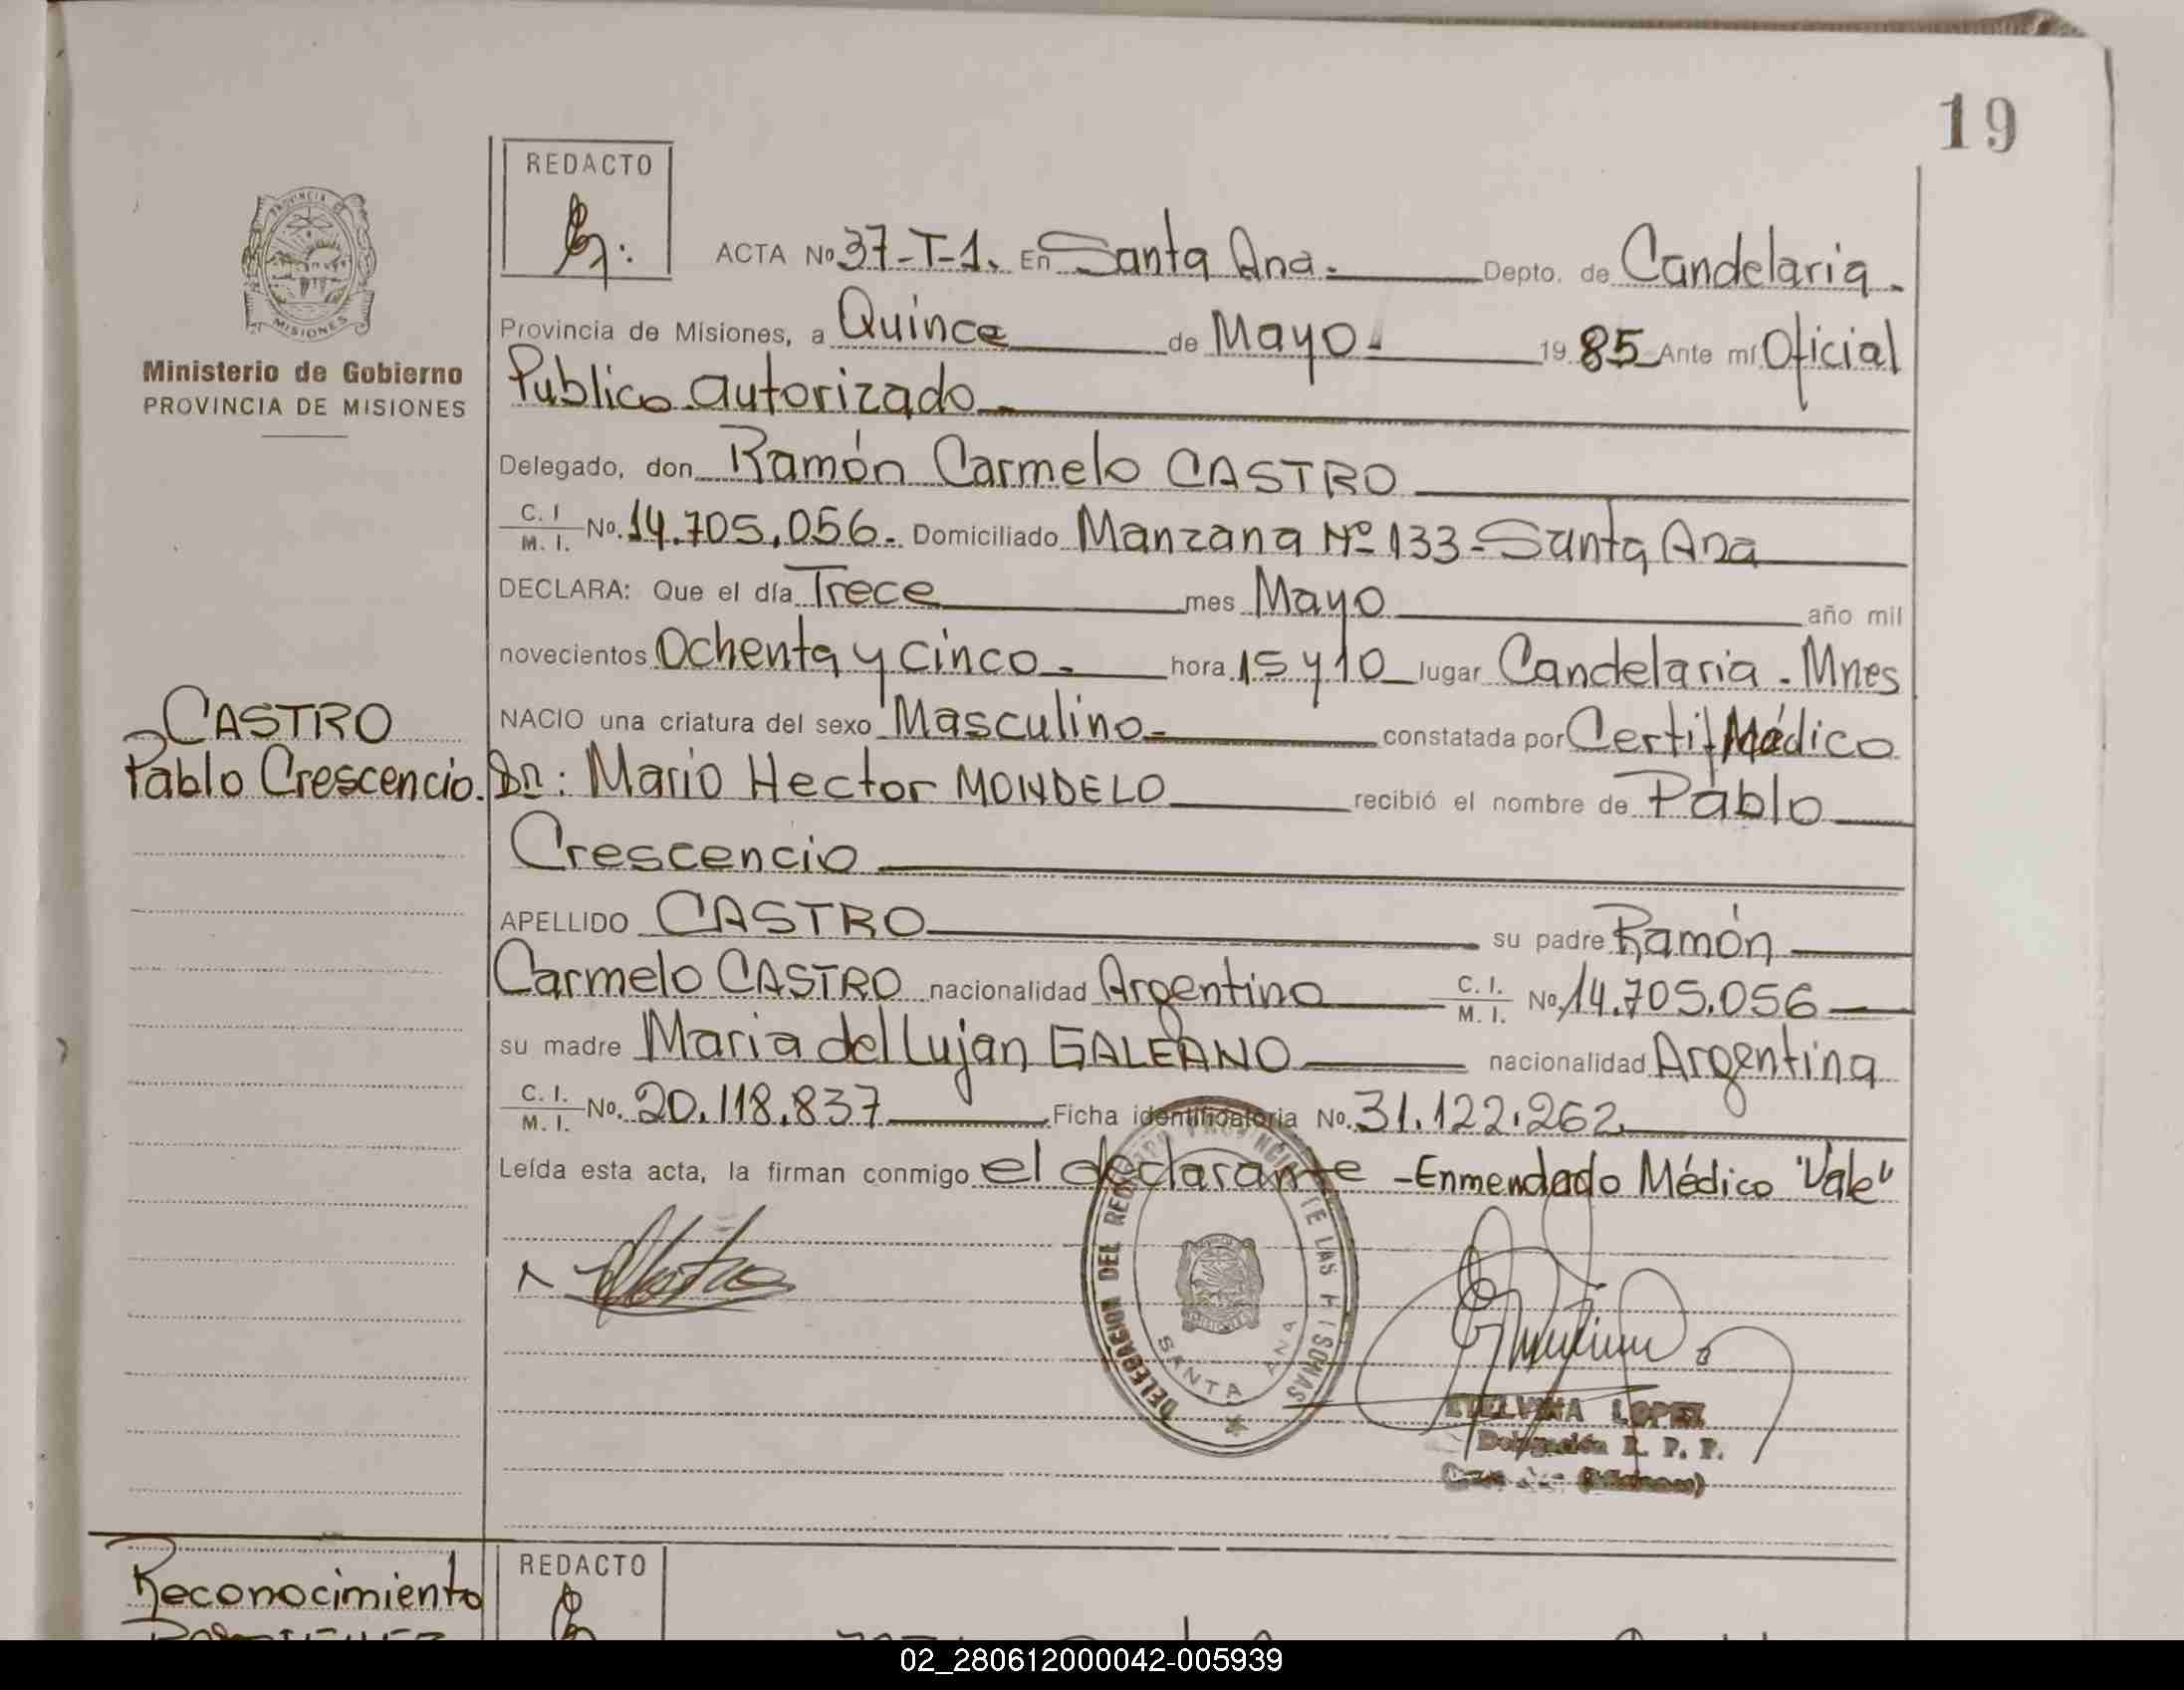 19
REDACTO
PROVINCIA DE
MISIONES
Ministerio de Gobierno
PROVINCIA DE MISIONES
ACTA No 37-T-1. En Santa Ana. Depto. de Candelaria.
Provincia de Misiones, a Quince de Mayo. 19 85 Ante mí Oficial
Publico autorizado
Delegado, don Ramón Carmelo CASTRO
C. I. M. I. No. 14.705.056. Domiciliado Manzana Nº 133-Santa Ana
DECLARA: Que el día Trece mes Mayo año mil
novecientos Ochenta y cinco. hora 15 y 10 lugar Candelaria. Mnes
NACIO una criatura del sexo Masculino constatada por Certif Médico
CASTRO
Pablo Crescencio.
Dr: Mario Hector MONDELO recibió el nombre de Pablo
Crescencio
APELLIDO CASTRO su padre Ramón
Carmelo CASTRO nacionalidad Argentino C. I. M. I. No. 14.705.056
su madre Maria del Lujan GALEANO nacionalidad Argentina
C. I. M. I. No. 20.118.837 Ficha identificatoria No. 31.122.262
Leída esta acta, la firman conmigo el declarante -Enmendado Médico "Vale"
DELEGACION DEL REGISTRO PROVINCIAL DE LAS PERSONAS
MISIONES
SANTA ANA
LOPEZ
Delegación R. P. P.
(Misiones)
Reconocimiento
REDACTO
02_280612000042-005939